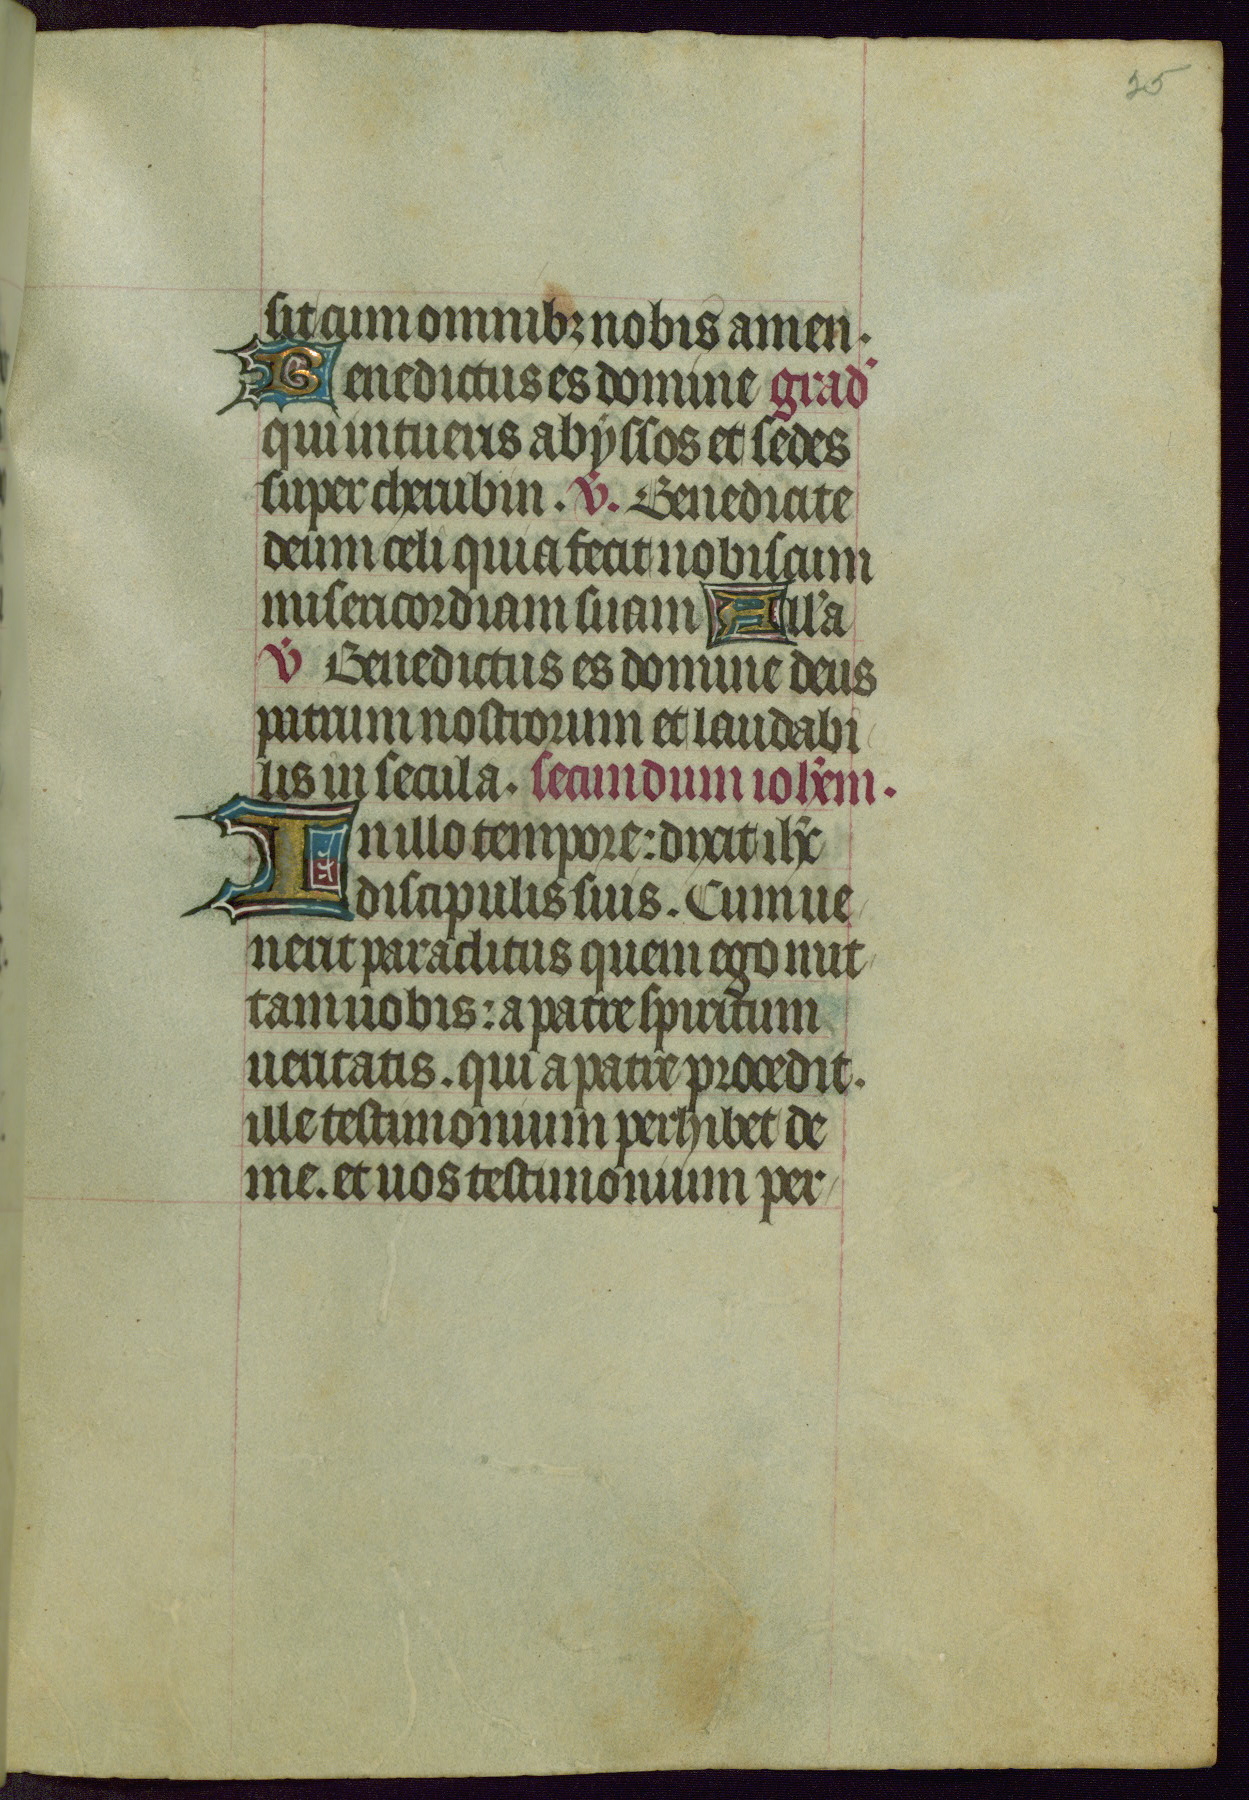 25
sit cum omnibꝫ nobis amen.
Benedictus es domine grad'
qui intueris abyssos et sedes
super cherubin. v̇. Benedicite
deum celi quia fecit nobiscum
misericordiam suam All'a
v̇ Benedictus es domine deus
patrum nostrorum et laudabi
lis in secula. secundum ioh̄em.
In illo tempore: dixit ih̄c
discipulis suis. Cum ue
nerit paraclitus quem ego mit
tam uobis: a patre spiritum
ueritatis. qui a patre procedit.
ille testimonium perhibet de
me. et uos testimonium per